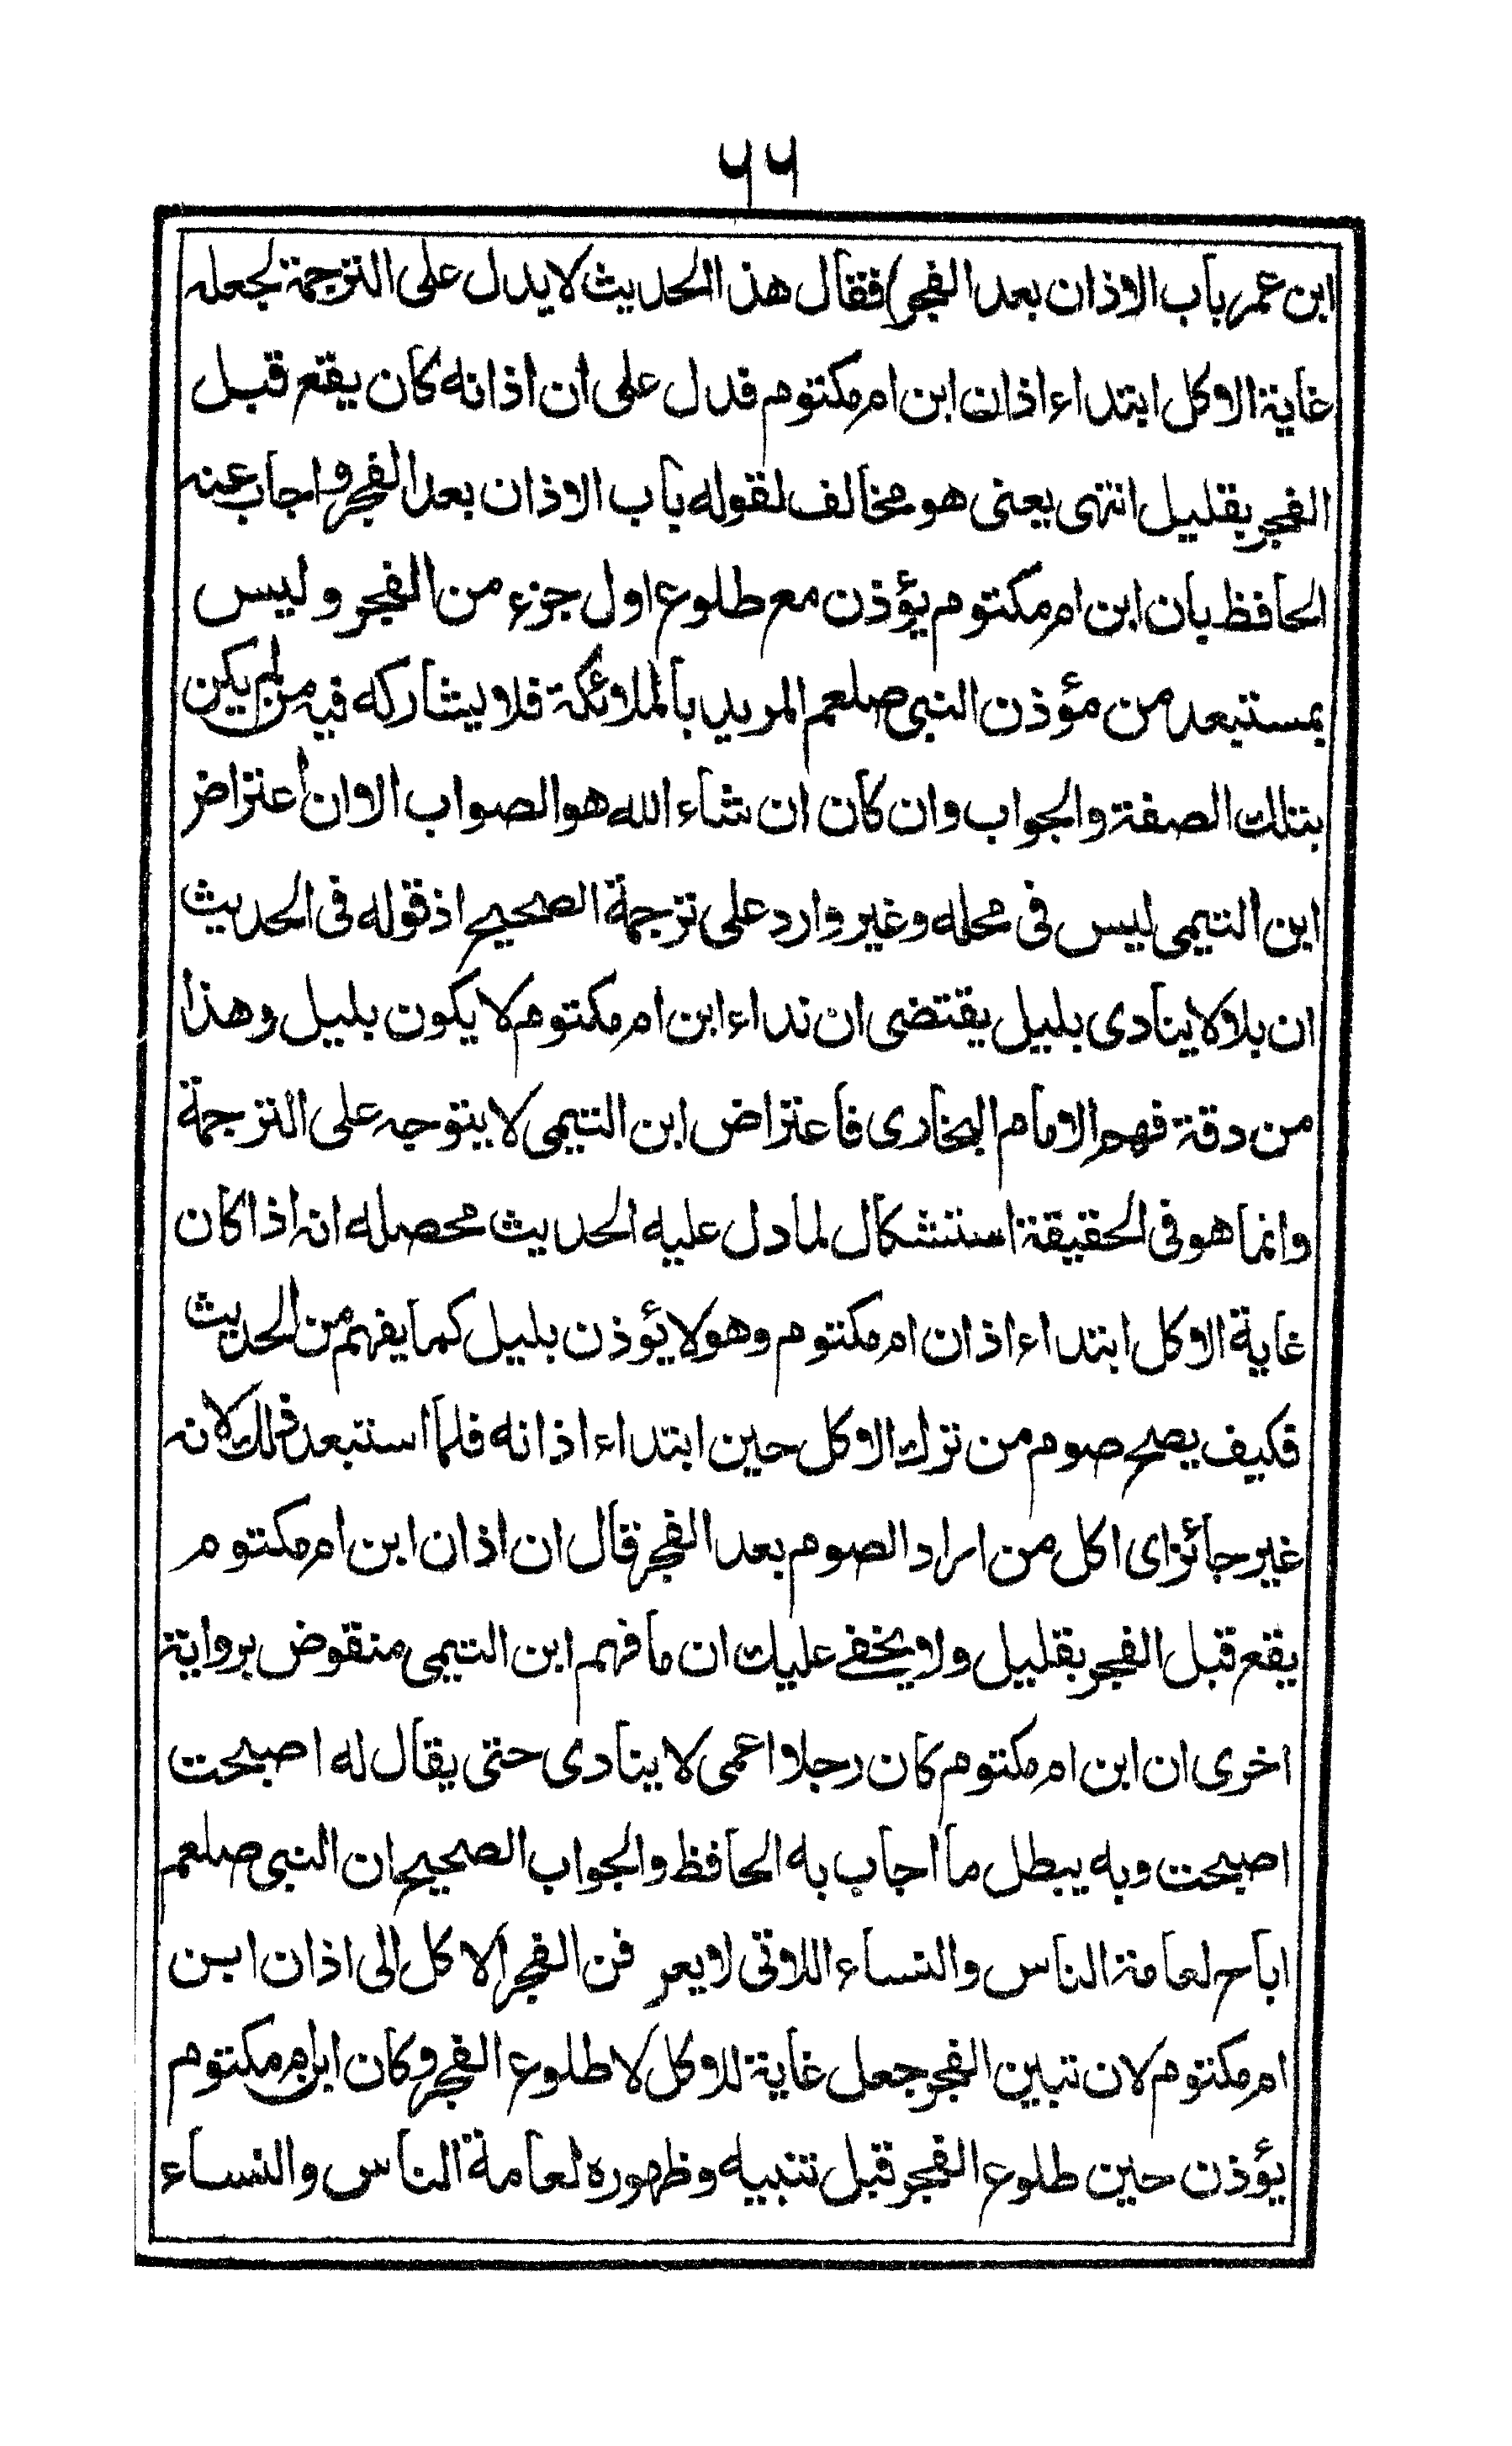 ۶۶
ابن عمر باب الاذان بعد الفجر) فقال هذا الحديث لا يدل على الترجمة لجعله
غاية الاكل ابتداء اذان ابن ام مكتوم فدل على ان اذانه كان يقع قبل
الفجر بقليل انتهى يعنى هو مخالف لقوله باب الاذان بعد الفجر واجاب عنه
الحافظ بان ابن ام مكتوم يؤذن مع طلوع اول جزء من الفجر وليس
بمستبعد من مؤذن النبى صلعم المريد بالملائكة فلا يشاركه فيه من لم يكن
بتلك الصفة والجواب وان كان ان شاء الله هو الصواب الا ان اعتراض
ابن التيمى ليس فى محله وغير وارد على ترجمة الصحيح اذ قوله فى الحديث
ان بلالا ينادى بليل يقتضى ان نداء ابن ام مكتوم لا يكون بليل وهذا
من دقة فهم الامام البخارى فاعتراض ابن التيمى لا يتوجه على الترجمة
وانما هو فى الحقيقة استشكال لما دل عليه الحديث محصله انه اذا كان
غاية الاكل ابتداء اذان ام مكتوم وهو لا يؤذن بليل كما يفهم من الحديث
فكيف يصح صوم من ترك الاكل حين ابتداء اذانه فلما استبعد ذلك لانه
غير جائز اى اكل من اراد الصوم بعد الفجر قال ان اذان ابن ام مكتوم
يقع قبل الفجر بقليل ولا يخفى عليك ان ما فهم ابن التيمى منقوض برواية
اخرى ان ابن ام مكتوم كان رجلا اعمى لا ينادى حتى يقال له اصبحت
اصبحت وبه يبطل ما اجاب به الحافظ والجواب الصحيح ان النبى صلعم
اباح لعامة الناس والنساء اللاتى لا يعر فن الفجر الاكل الى اذان ابن
ام مكتوم لان تبين الفجر جعل غاية للاكل لا طلوع الفجر وكان ابن ام مكتوم
يؤذن حين طلوع الفجر قبل تنبيه وظهوره لعامة الناس والنساء